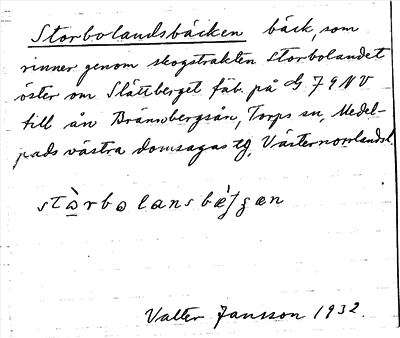 Storbolandsbäcken bäck, som
rinner genom skogstrakten Storbolandet
öster om Slättberget fäb. på G 79 NV
till ån Brännbergsån, Torps sn, Medel-
pads västra domsagas tg, Västernorrlandsl.
Valter Jansson 1932.